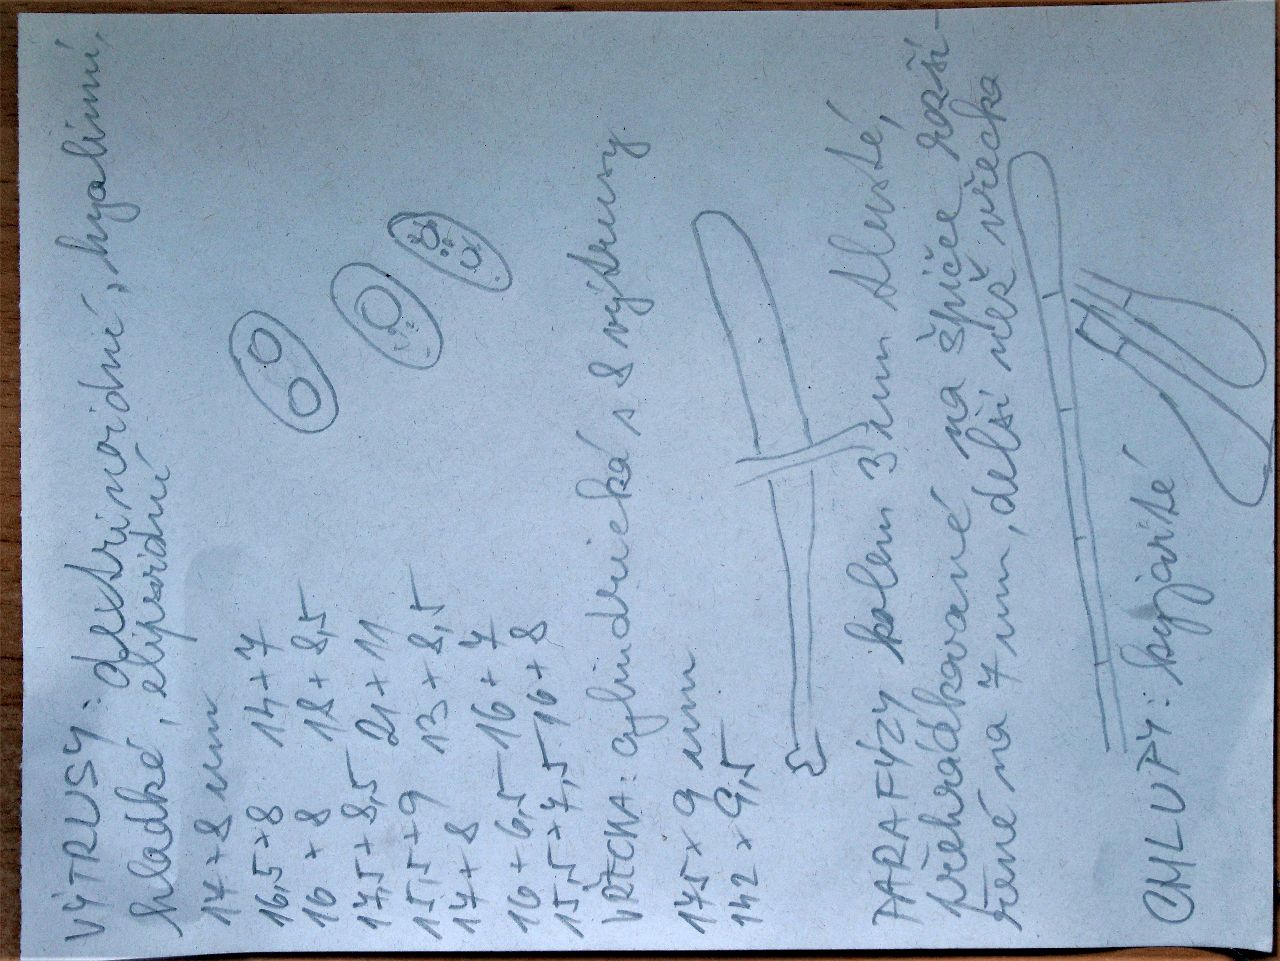 VÝTRUSY: dextrinoidní, hyalinní,
hladké, elipsoidní
17 × 8 um
16,5 × 8 14 × 7
16 × 8 18 × 8,5
17,5 × 8,5 21 × 11
15,5 × 9 13 × 8,5
17 × 8
16 × 6,5 16 × 7
15,5 × 7,5 16 × 8
VŘECKA: cylindrická s 8 výtrusy
175 × 9 um
142 × 9,5
PARAFÝZY kolem 3 um tlusté,
přehrádkované na špičce rozší-
řené na 7 um, delší než vřecka
CHLUPY: kyjovité